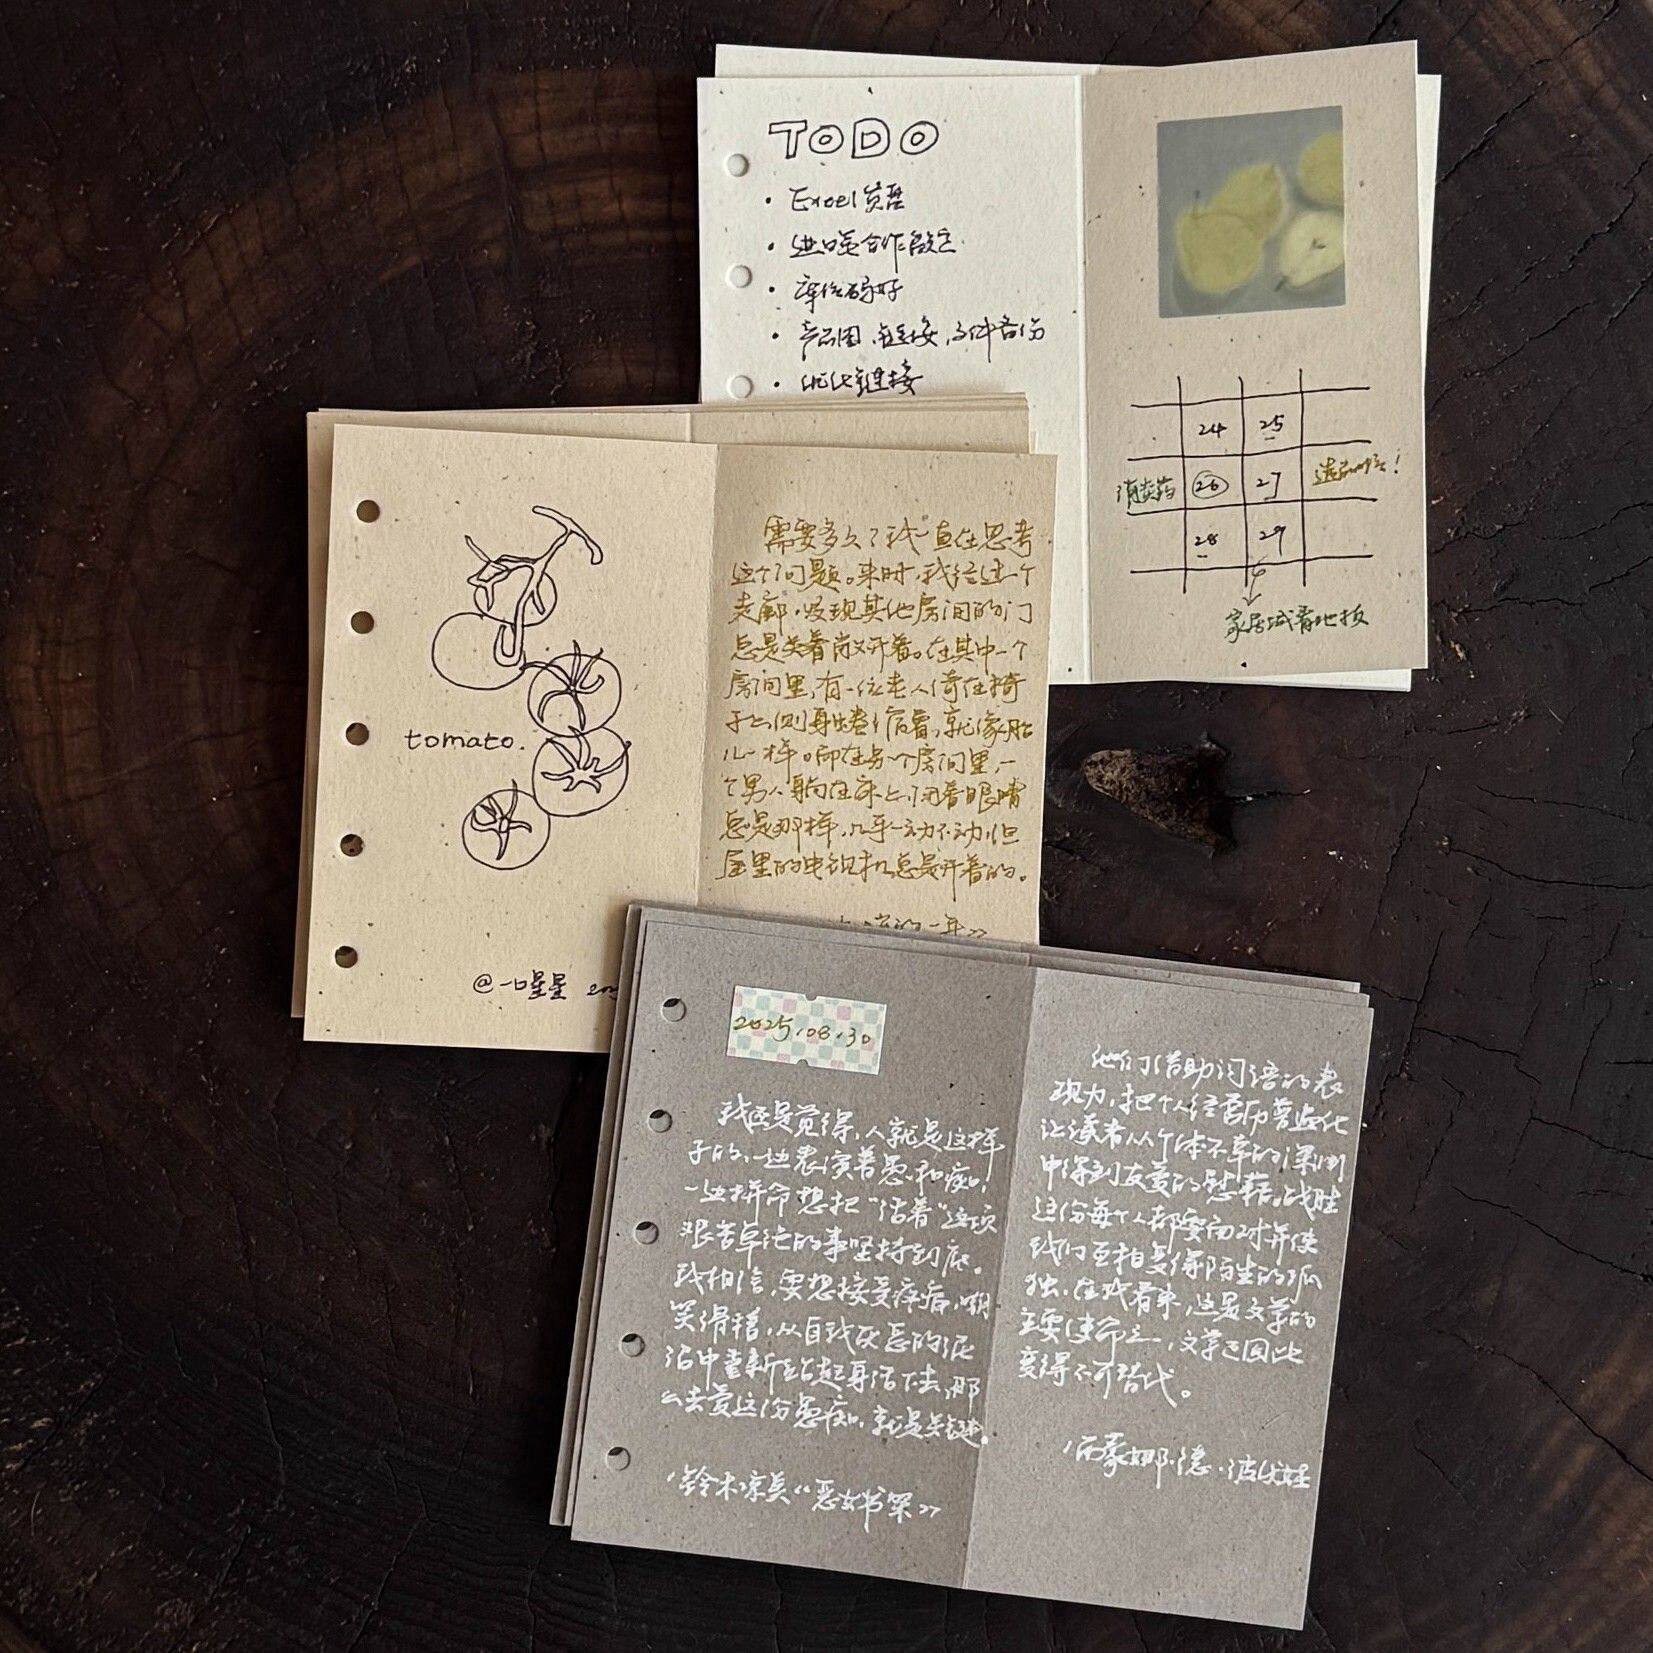 TODO
• Excel
• 进口 合作
•
• 产品图、链接、文件备份
• 优化链接
24 25
消炎药 26 27 选品
28 29
家居城看地板
tomato.
@一口星星
需要多久？我一直在思考
这个问题。来时，我经过一个
走廊，发现其他房间的门
总是关着或开着。在其中一个
房间里，有一位老人倚在椅
子上，侧身蜷缩着，就像胎
儿一样。而在另一个房间里，一
个男人躺在床上，闭着眼睛
总是那样，几乎一动不动，但
屋里的电视机总是开着的。
的一年》
2025.08.30
我还是觉得，人就是这样
子的，一边表演着愚和痴，
一边拼命想把“活着”这项
艰苦卓绝的事坚持到底。
我相信，要想接受病后，嘲
笑滑稽，从自我厌恶的泥
沼中重新站起身活下去，那
么去爱这份愚痴，就是关键。
，铃木凉美《恶女书架》
他们借助词语的表
现力，把个人经历普遍化
让读者从个体不幸的深渊
中得到友爱的慰藉。战胜
这份每个人都要面对并使
我们互相变得陌生的孤
独，在我看来，这是文学的
主要使命之一，文学也因此
变得不可替代。
，西蒙娜·德·波伏娃